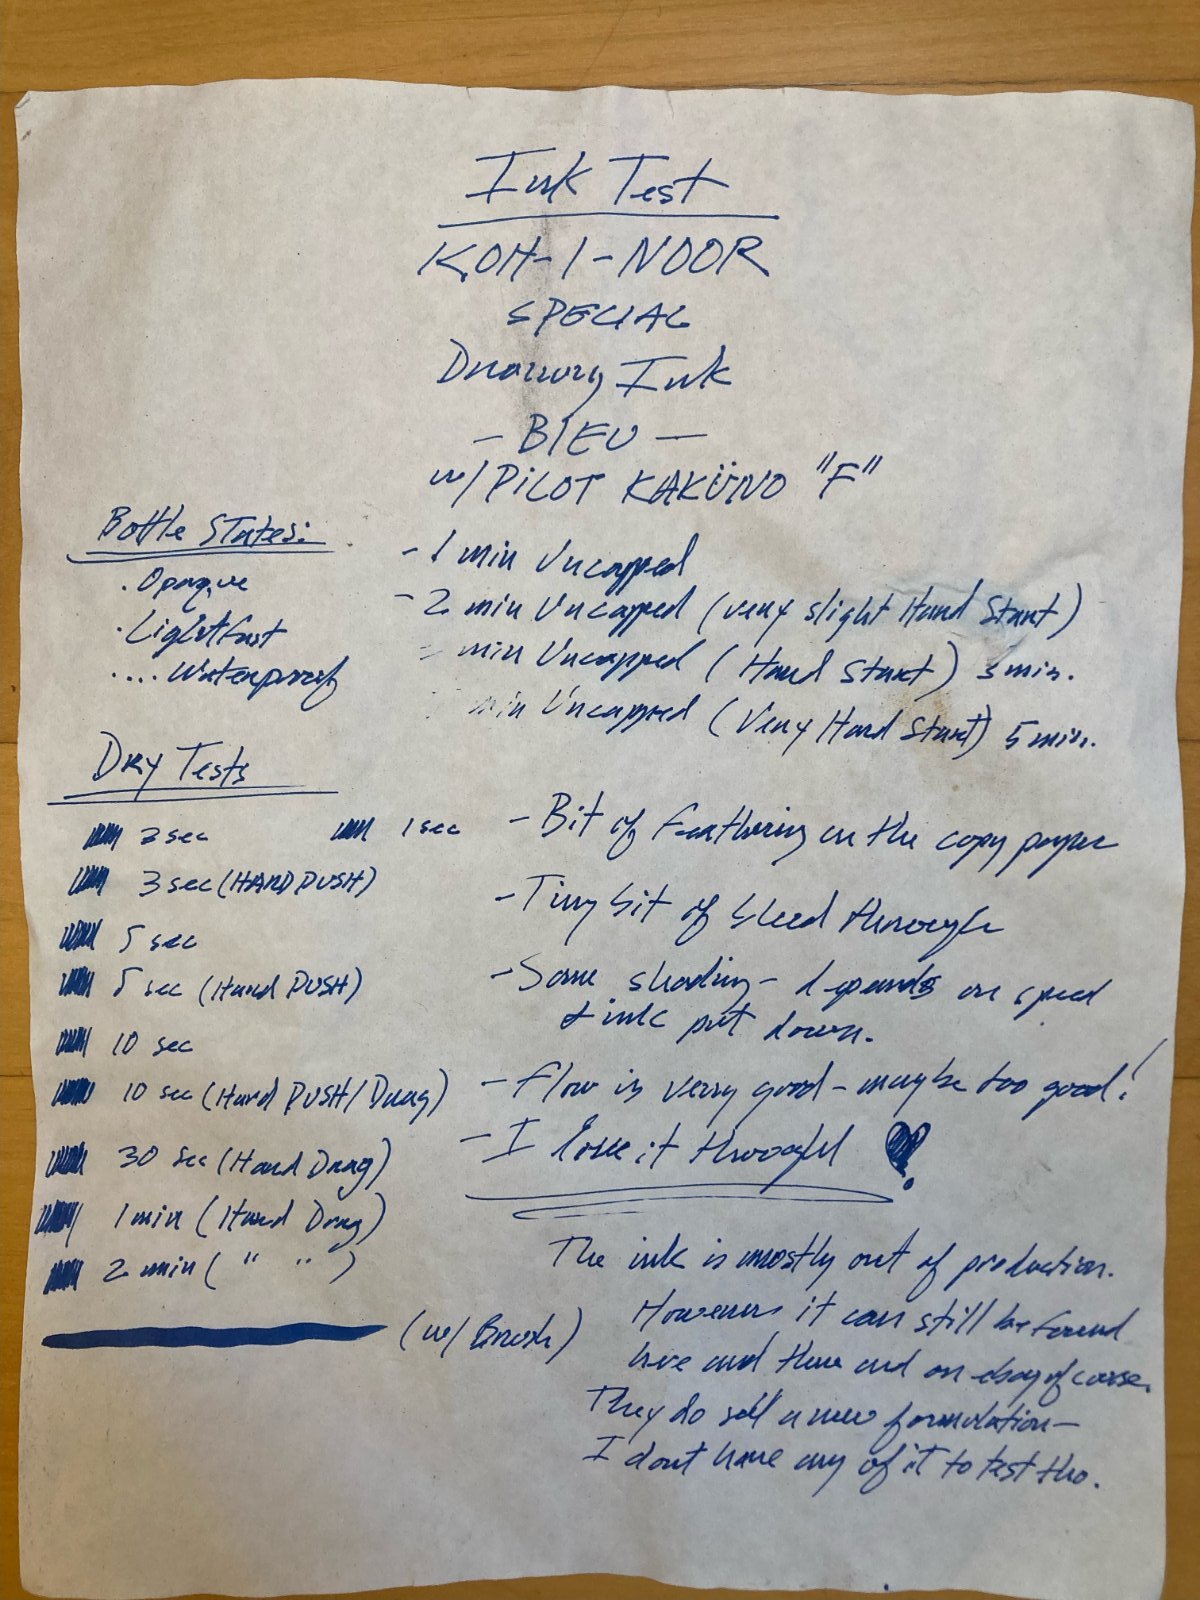 Ink Test
KOH-I-NOOR
SPECIAL
Drawing Ink
- BlEU -
w/ PILOT KAKÜNO "F"
Bottle States:
. Opaque
. Lightfast
.... Waterproof
- 1 min Uncapped
- 2 min Uncapped (very slight Hard Start)
min Uncapped (Hard Start) 3 min.
min Uncapped (Very Hard Start) 5 min.
DRY Tests
sec
1 sec
3 sec (HARD PUSH)
5 sec
5 sec (Hard PUSH)
10 sec
10 sec (Hard PUSH/Drag)
30 sec (Hard Drag)
1 min (Hard Drag)
2 min ( " " )
(w/ Brush)
- Bit of feathering on the copy paper
- Tiny bit of bleed through
- Some shading - depends on speed
& ink put down.
- Flow is very good - maybe too good!
- I love it
The ink is mostly out of production.
However it can still be found
here and there and on ebay of course.
They do sell a new formulation -
I dont have any of it to test tho.